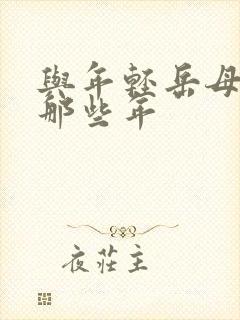 與年輕岳母
那些年
夜莊主